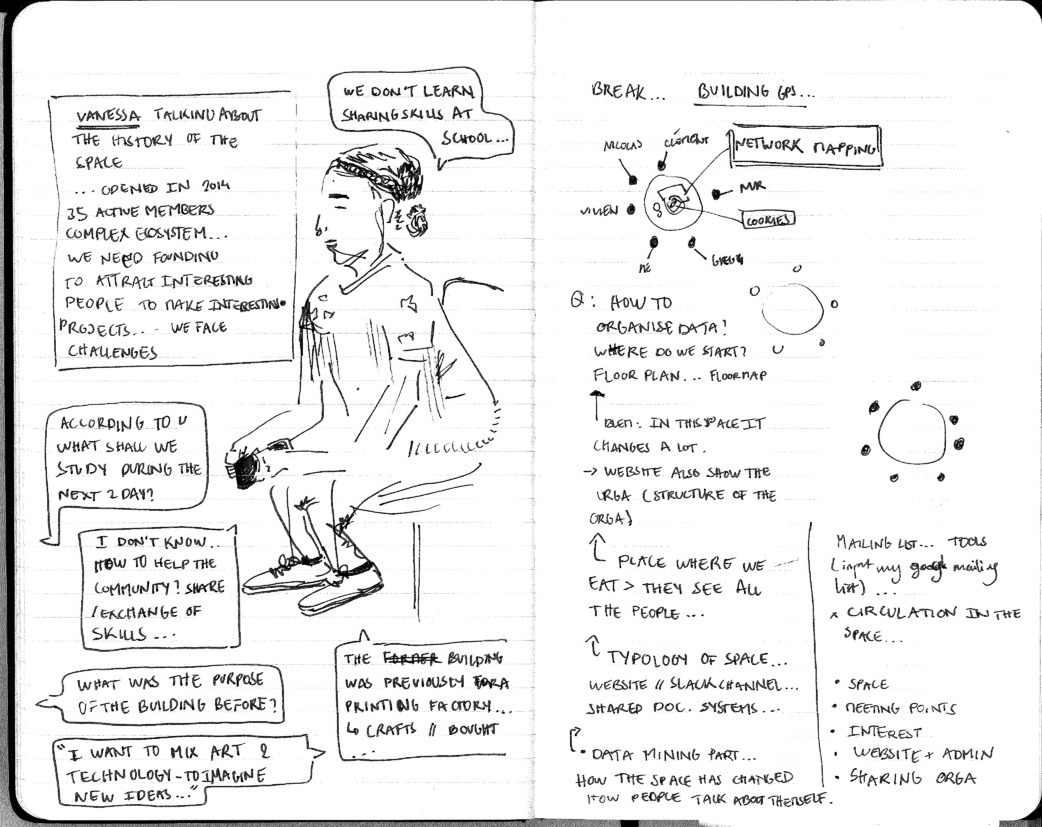 VANESSA TALKING ABOUT
THE HISTORY OF THE
SPACE
... OPENED IN 2014
35 ACTIVE MEMBERS
COMPLEX ECOSYSTEM...
WE NEED FOUNDING
TO ATTRACT INTERESTING
PEOPLE TO MAKE INTERESTING
PROJECTS... - WE FACE
CHALLENGES
WE DON'T LEARN
SHARING SKILLS AT
SCHOOL...
ACCORDING TO U
WHAT SHALL WE
STUDY DURING THE
NEXT 2 DAY?
I DON'T KNOW...
HOW TO HELP THE
COMMUNITY? SHARE
/EXCHANGE OF
SKILLS ...
WHAT WAS THE PURPOSE
OF THE BUILDING BEFORE?
THE FORMER BUILDING
WAS PREVIOUSLY FOR A
PRINTING FACTORY...
↳ CRAFTS // BOUGHT
...
"I WANT TO MIX ART &
TECHNOLOGY - TO IMAGINE
NEW IDEAS..."
BREAK... BUILDING GPS...
NICOLAS
CLÉMENT
NETWORK MAPPING
NUR
VIVIEN
COOKIES
ME
Q: HOW TO
ORGANISE DATA?
WHERE DO WE START?
FLOOR PLAN... FLOORMAP
BEN: IN THIS SPACE IT
CHANGES A LOT.
→ WEBSITE ALSO SHOW THE
ORGA (STRUCTURE OF THE
ORGA)
PLACE WHERE WE
EAT > THEY SEE ALL
THE PEOPLE...
TYPOLOGY OF SPACE...
WEBSITE // SLACK CHANNEL...
SHARED DOC. SYSTEMS...
• DATA MINING PART...
HOW THE SPACE HAS CHANGED
HOW PEOPLE TALK ABOUT THEMSELF.
MAILING LIST... TOOLS
(input my google mailing
list) ...
x CIRCULATION IN THE
SPACE...
• SPACE
• MEETING POINTS
• INTEREST
• WEBSITE + ADMIN
• SHARING ORGA